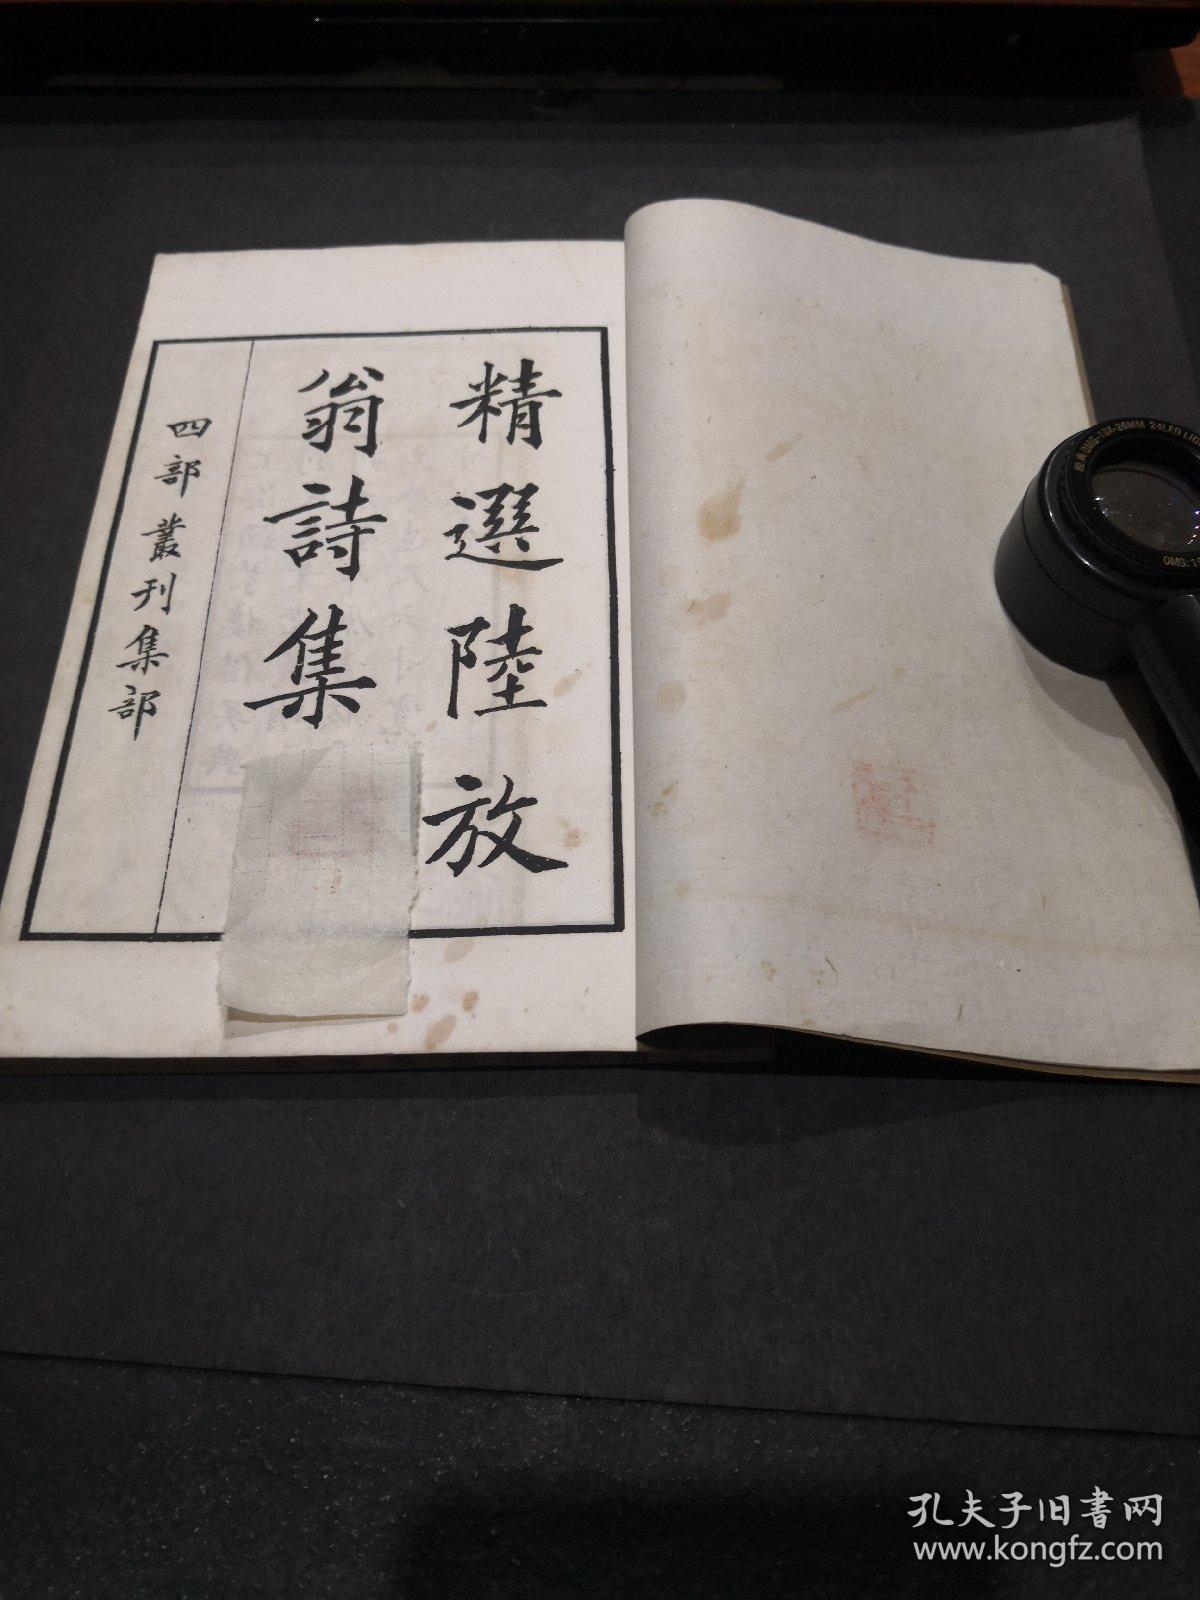 精選陸放
翁詩集
四部叢刊集部
孔夫子旧书网
www.kongfz.com